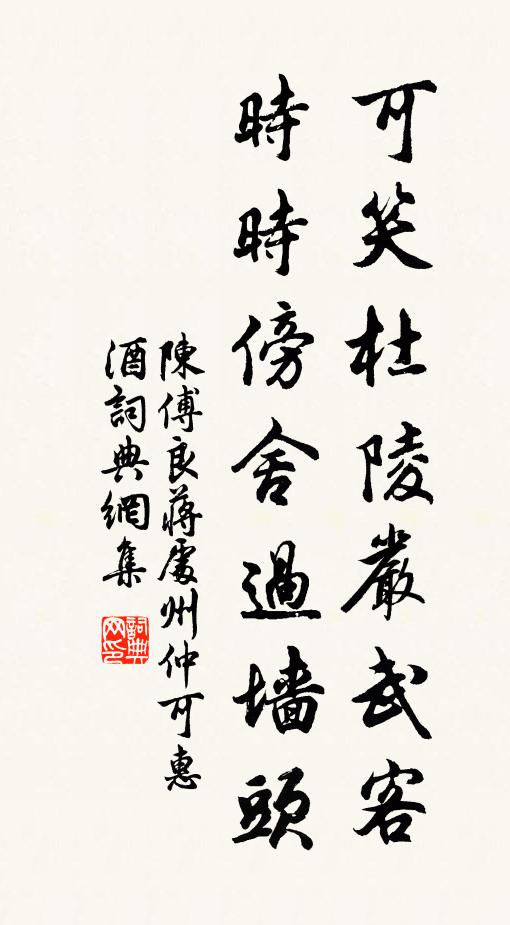 可笑杜陵嚴武客
時時傍舍過墻頭
陳傅良蔣處州仲可惠
酒詞典網集
詞典
网印